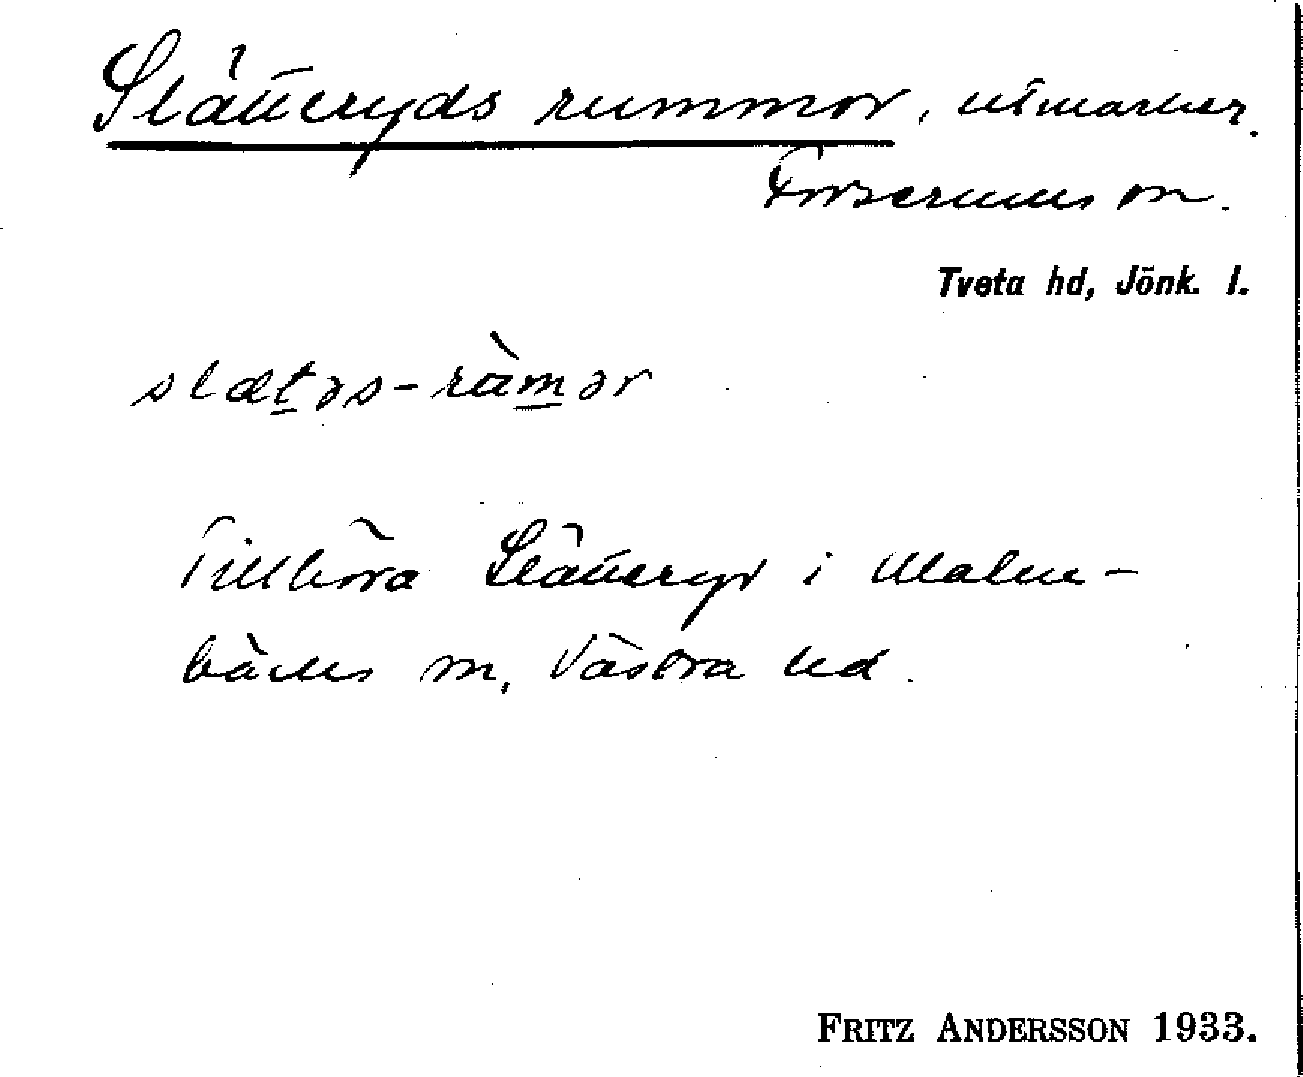 Slätteryds rummor, utmarker.
Forserums sn.
Tveta hd, Jönk. l.
slætəs-ràmər
Tillhöra Slätteryd i Malm-
bäcks sn, Västra hd.
FRITZ ANDERSSON 1933.